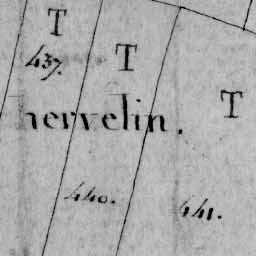 T
437.
T
hervelin.
T
440.
441.